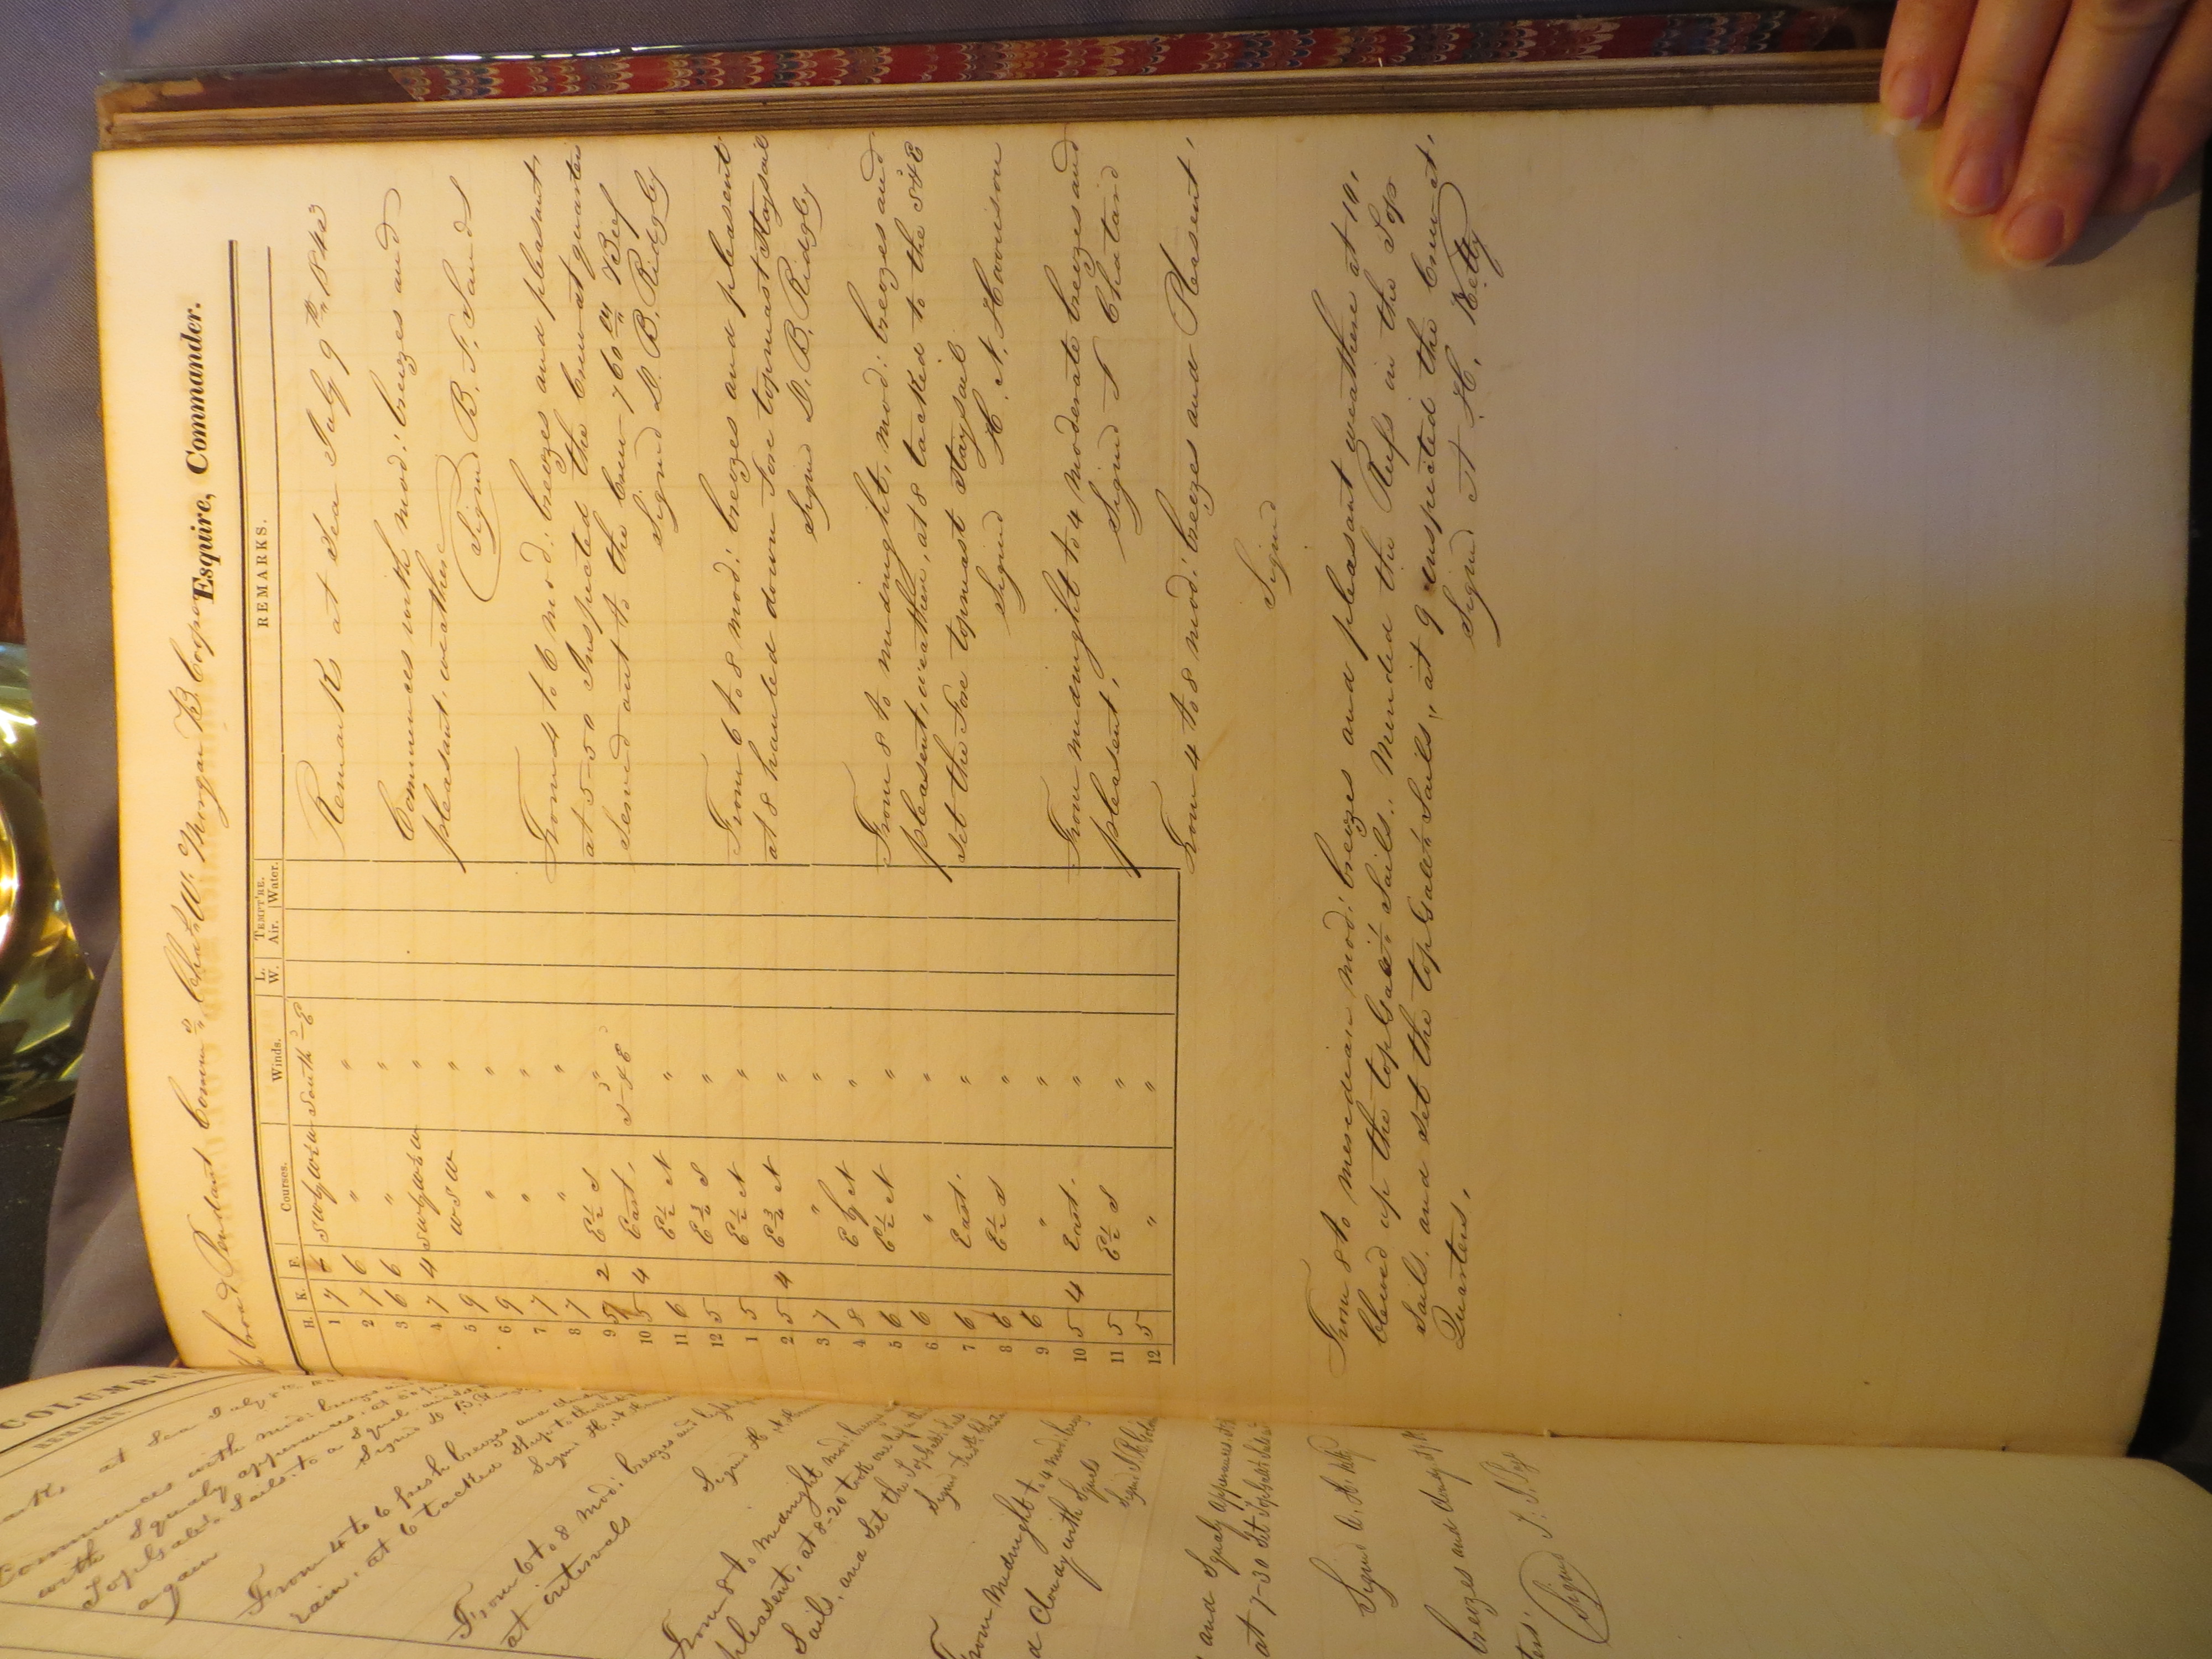 COLUMBUS
REMARKS.
at Sea July 8th
Commences with mod: breezes and
with Squaly apperances: at
TopGalt Sails: to a Squal and
again
From 4 to 6 fresh breezes and
rain, at 6 tacked Ship to the
From 6 to 8 mod: breezes and
at intervals
From 8 to midnight mod: breezes
pleasent, at 8-20 took one
Sails, and Set the
From Midnight to 4 mod: breezes
a Cloudy with Squals
and Squaly apperances
at 7-30 Set
Signed
breezes and
Signed
broad Pendant Comm'd Chas W. Morgan B. Cooper Esquire, Commander.
H. K. F. Courses. Winds. L. W. TEMPT'RE. Air. Water. REMARKS.
1 7 6 SWbyW½W South'd-E
2 7 6 " "
3 6 6 " "
4 7 4 SWbyW½W "
5 9 WSW "
6 9 " "
7 7 " "
8 7 " "
9 5 2 E½S "
10 5 4 East, S'd-&E
11 6 E½N "
12 5 E¾S "
1 5 E½N "
2 5 4 E¾N "
3 7 " "
4 8 EbyN "
5 6 E½N "
6 6 " "
7 6 East. "
8 6 E½S "
9 6 " "
10 5 4 East. "
11 5 E½S "
12 5 " "
Remarks at Sea July 9th 1843
Commences with mod: breezes and
pleasant, weather
Signed B. F. Sands
From 4 to 6 mod: breezes and pleasant,
at 5-50 Inspected the Crew at quarters
Served out to the Crew 760 lbs Beef
Signed D. B. Ridgely
From 6 to 8 mod: breezes and pleasent
at 8 hauled down Fore topmast Staysail
Signed D. B. Ridgely
From 8 to midnight, mod: breezes and
pleasent, weather, at 8 tacked to the S'd&E
set the Fore topmast Staysail
Signed H. N. Harrison
From midnight to 4 moderate breezes and
pleasent,
Signed F Chatard
From 4 to 8 mod: breezes and Plesent,
Signed
From 8 to meredian mod: breezes and pleasant weather at 10,
clewed up the topGalt Sails. Mended the Reefs in the Top
Sails. and set the topGalt Sails, at 9 inspected the Crew at,
Quarters,
Signed A H. Kelty